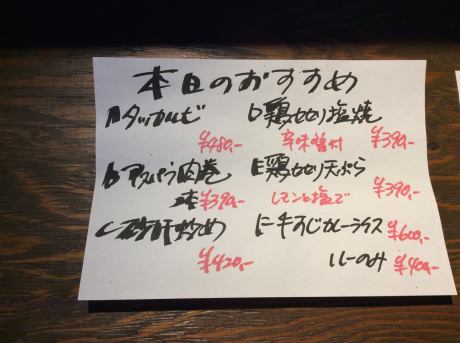 本日のおすすめ
A タッカルビ
¥980,-
B アスパラ肉巻
2本 ¥390,-
C 砂肝炒め
¥420,-
D 鶏せせり塩焼
辛味噌付 ¥390,-
E 鶏せせり天ぷら
レモンと塩で ¥390,-
F 牛すじカレーライス ¥600,-
ルーのみ ¥400,-